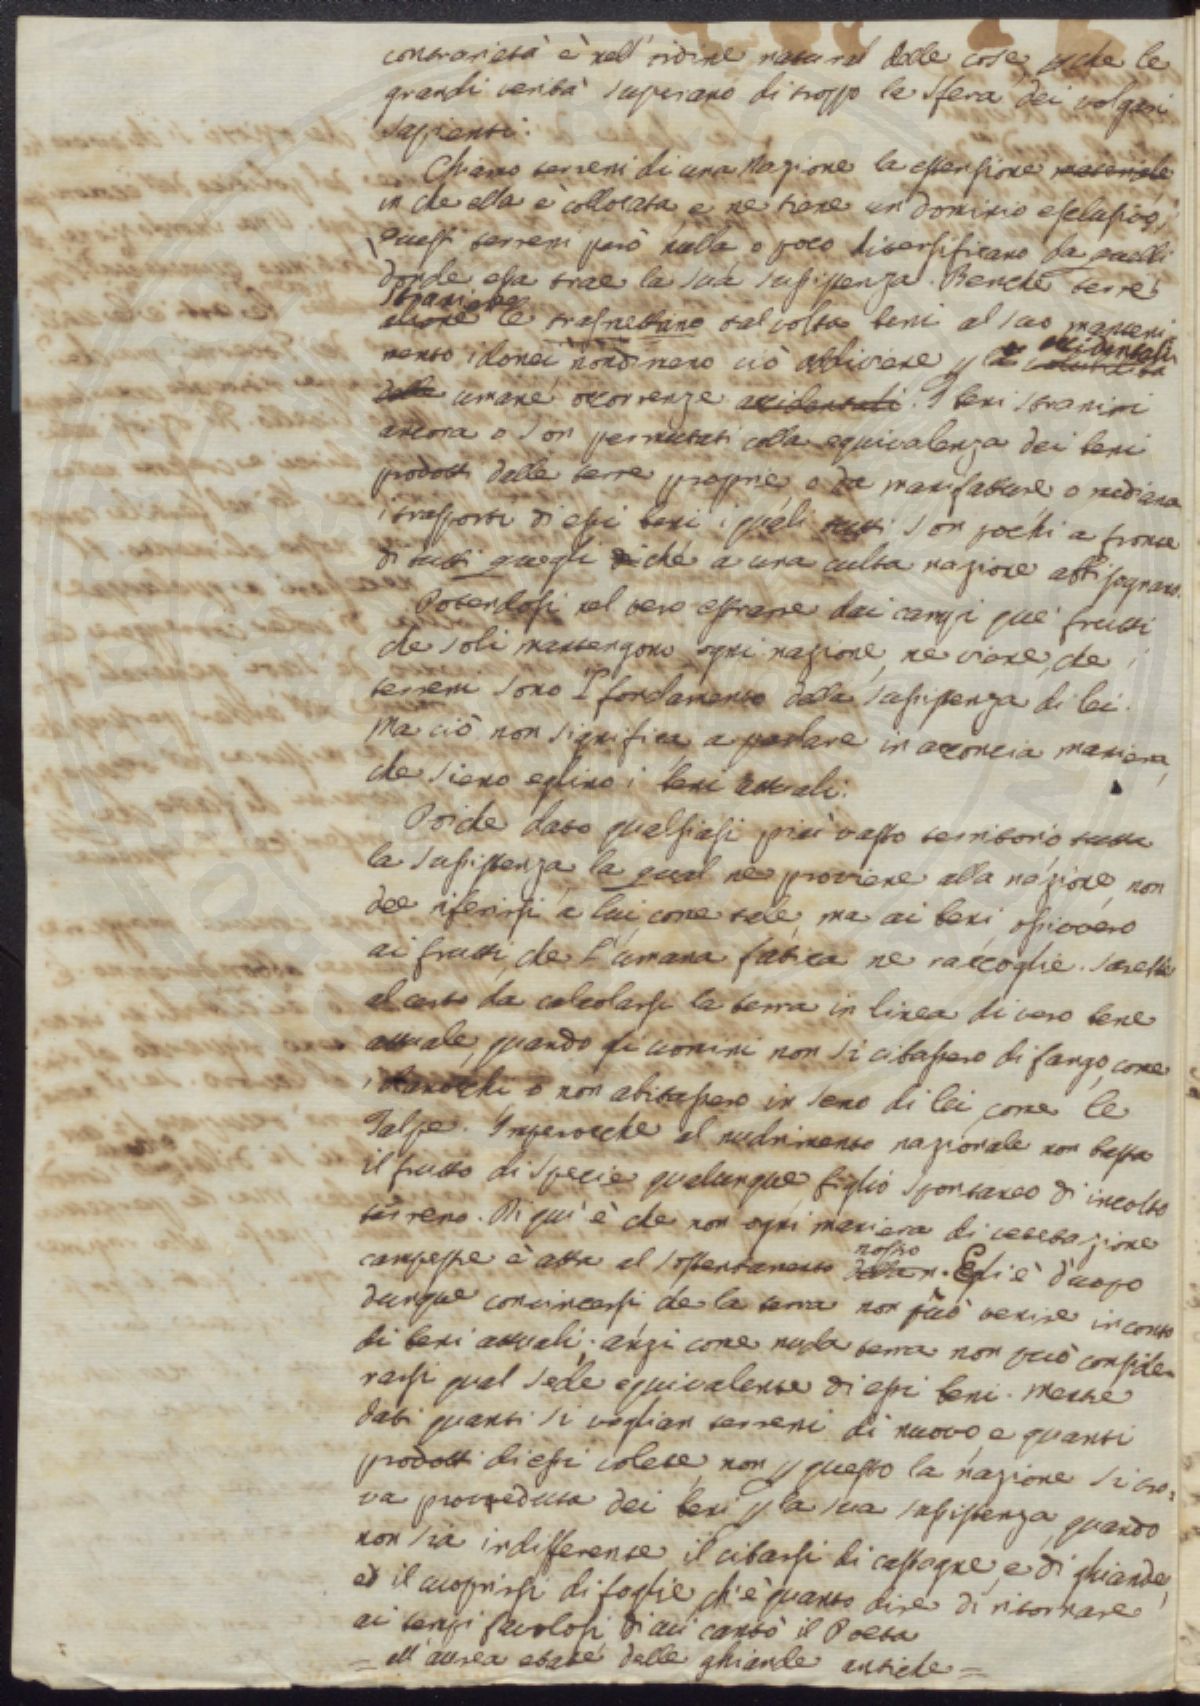 contrarietà è nell'ordine natural delle cose, che le
grandi verità superano di troppo la sfera dei volgari
sapienti.
Chiamo terreni di una Nazione la estensione materiale
in che ella è collocata e ne tiene un dominio esclusivo;
questi terreni però nulla o poco diversificano da quelli
donde essa trae la sua sussistenza. Benché terre
straniere
altrove le trasmettano tal volta beni al suo manteni
mento idonei nondimeno ciò avviene p la
accidentali
delle umane occorrenze accidentali. I beni stranieri
ancora o son permutati colla equivalenza dei beni
prodotti dalle terre proprie, o da manifatture o mediana
i trasporti di essi beni i quali tutti son pochi a fronte
di tutti quegli che a una culta nazione abbisognano.
Potendosi nel vero estrarre dai campi que' frutti
che soli mantengono ogni nazione, ne viene, che i
terreni sono l fondamento della sussistenza di lei.
Ma ciò non significa, a parlare in acconcia maniera,
che sieno eglino i beni attuali.
Poiche dato qualsiasi più vasto territorio tutta
la sussistenza la qual ne proviene alla nazione, non
dee riferirsi a lui, come tale, ma ai beni, ossivvero
ai frutti, che l'umana fatica ne raccoglie. Sarebbe
al certo da calcolarsi la terra in linea di vero bene
attuale, quando gli uomini non si cibassero di fango, come
i Ranocchi o non abitassero in seno di lei, come le
Talpe. Imperocche al nudrimento nazionale non basta
il frutto di specie qualunque, figlio spontaneo di incolto
terreno. Di qui è che non ogni maniera di vegetazione
campestre è atta al sostentamento della n.
nostro
Egli è d'uopo
dunque convincersi che la terra non può venire in conto
di beni attuali; anzi come nuda terra non può conside
rarsi qual sede equivalente di essi beni. Mentre
dati quanti si voglian terreni di nuovo, e quanti
prodotti di essi volete, non p questo la nazione si tro=
va provveduta dei beni p la sua sussistenza, quando
non sia indifferente il cibarsi di castagne, e di ghiande,
ed il cuoprirsi di foglie, ch'è quanto dire di ritornare
ai tempi favolosi di cui cantò il Poeta
= all'aurea etate delle ghiande antiche =